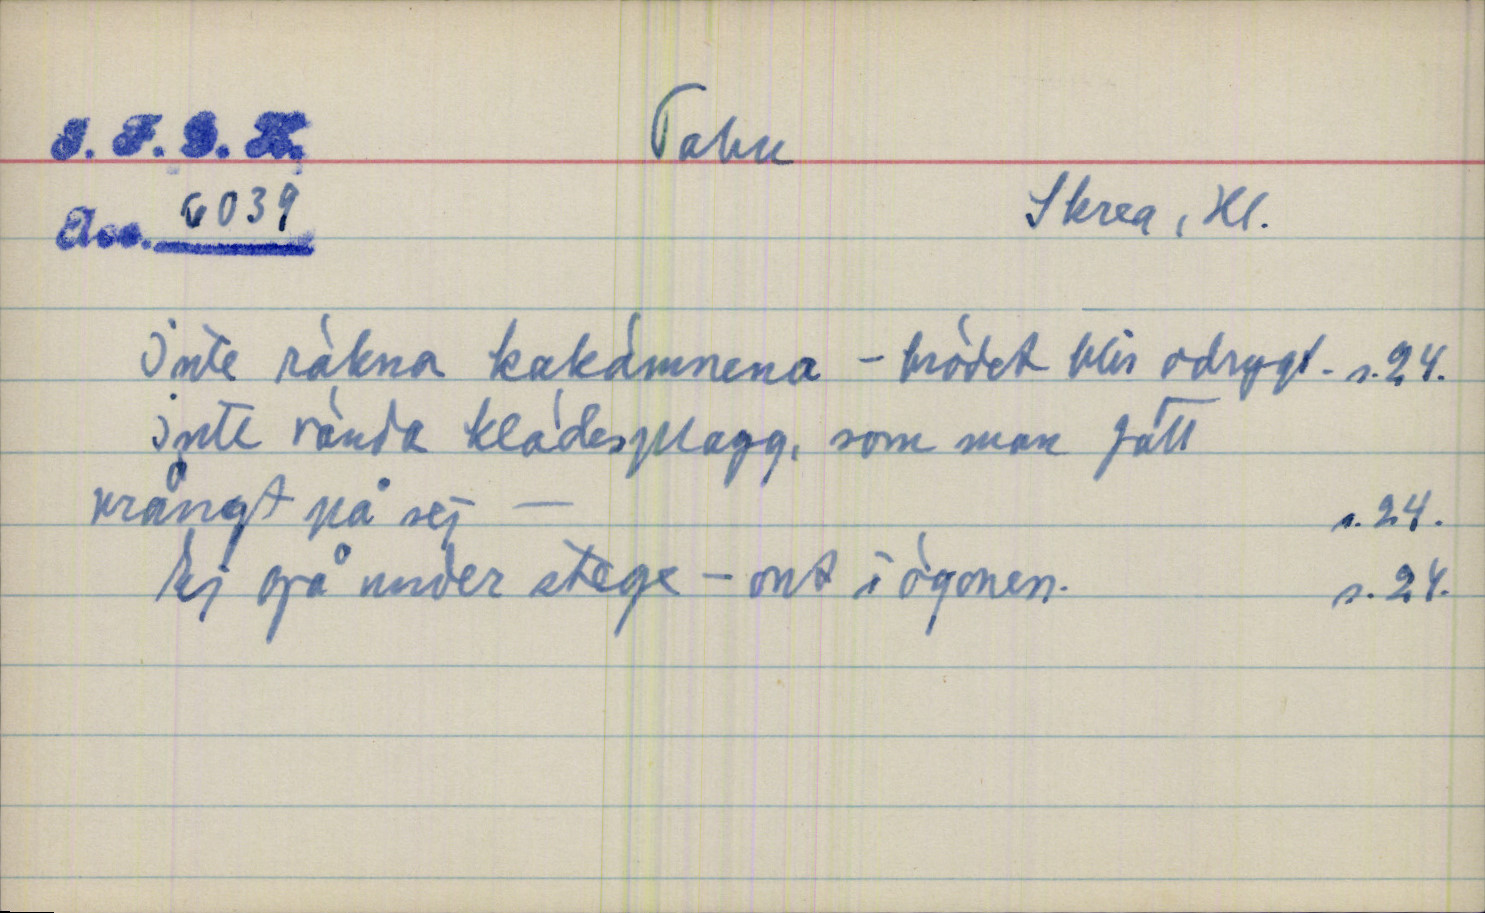 I. F. G. H.
Tabu
Acc. 6039
Skrea, Hl.
Inte räkna kakämnena - brödet blir odrygt. s. 24.
Inte vända klädesplagg, som man fått
vrångt på sej - s. 24.
Ej gå under stege - ont i ögonen. s. 24.